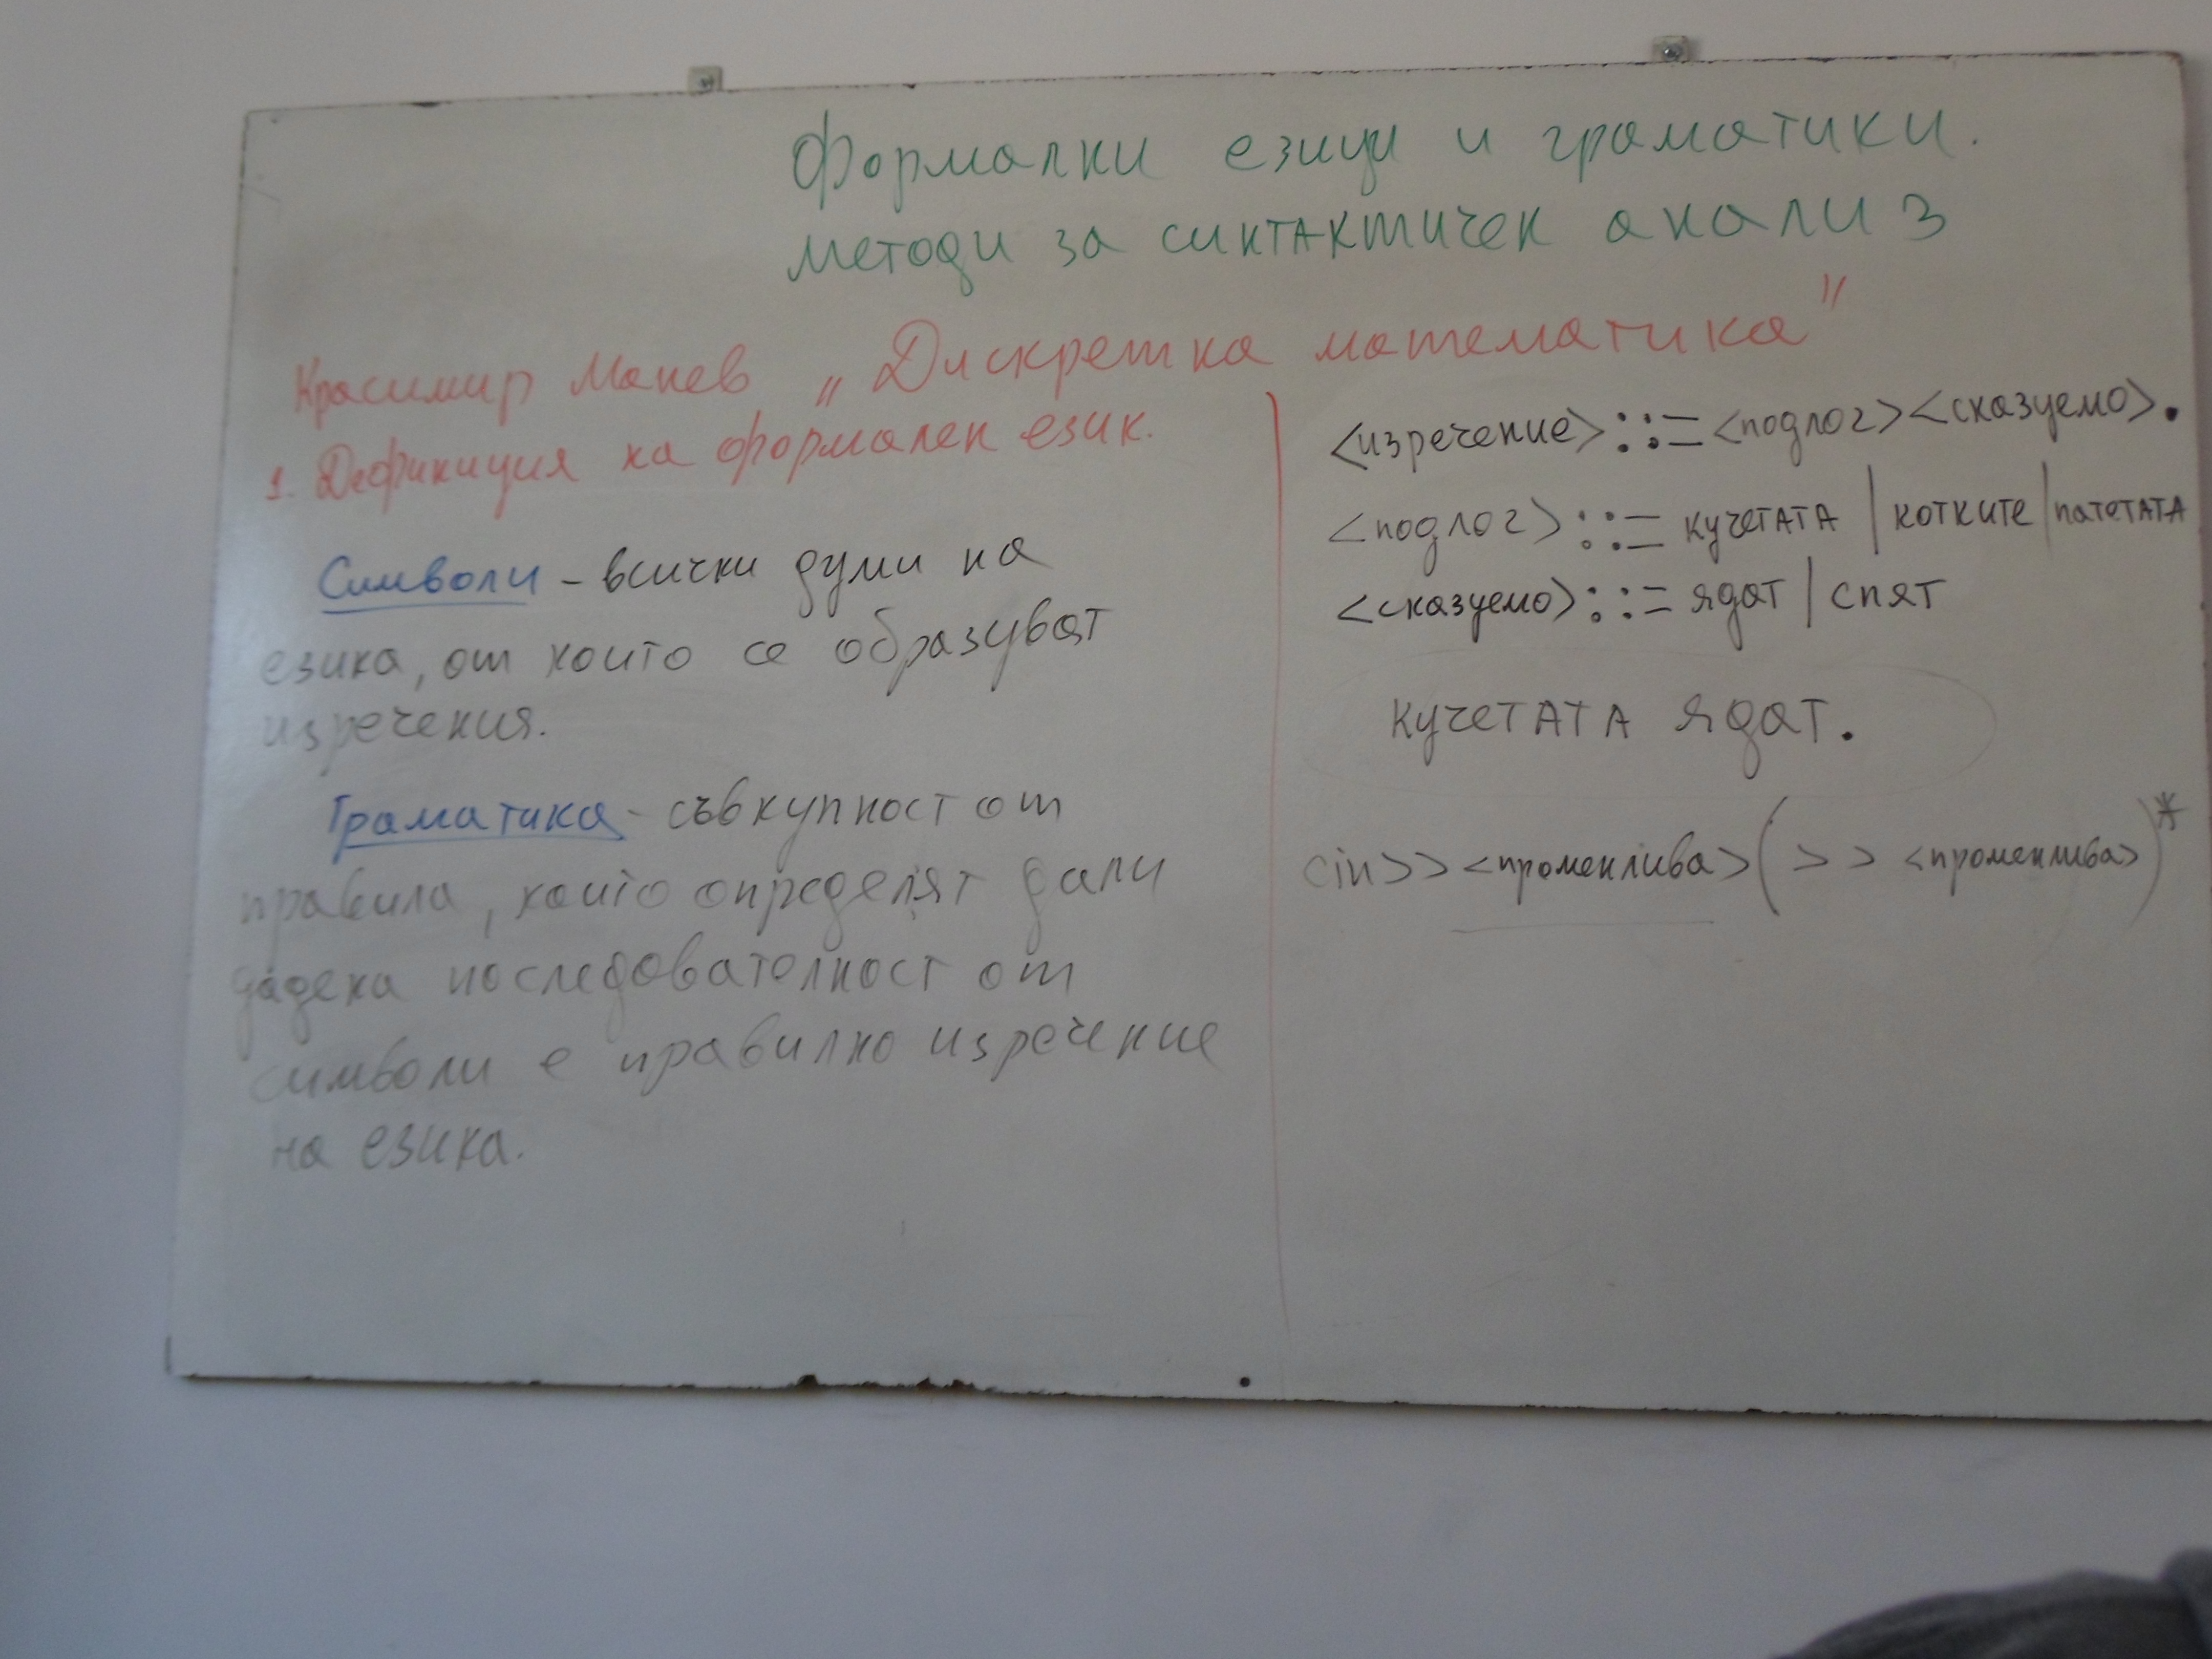 Формални езици и граматики.
Методи за синтактичен анализ
Красимир Манев „Дискретна математика"
1. Дефиниция на формален език.
Символи – всички думи на
езика, от които се образуват
изречения.
Граматика - съвкупност от
правила, които определят дали
дадена последователност от
символи е правилно изречение
на езика.
<изречение> ::= <подлог><сказуемо>.
<подлог> ::= кучетата | котките | патетата
<сказуемо> ::= ядат | спят
кучетата ядат.
cin>> <променлива> (>> <променлива>)*